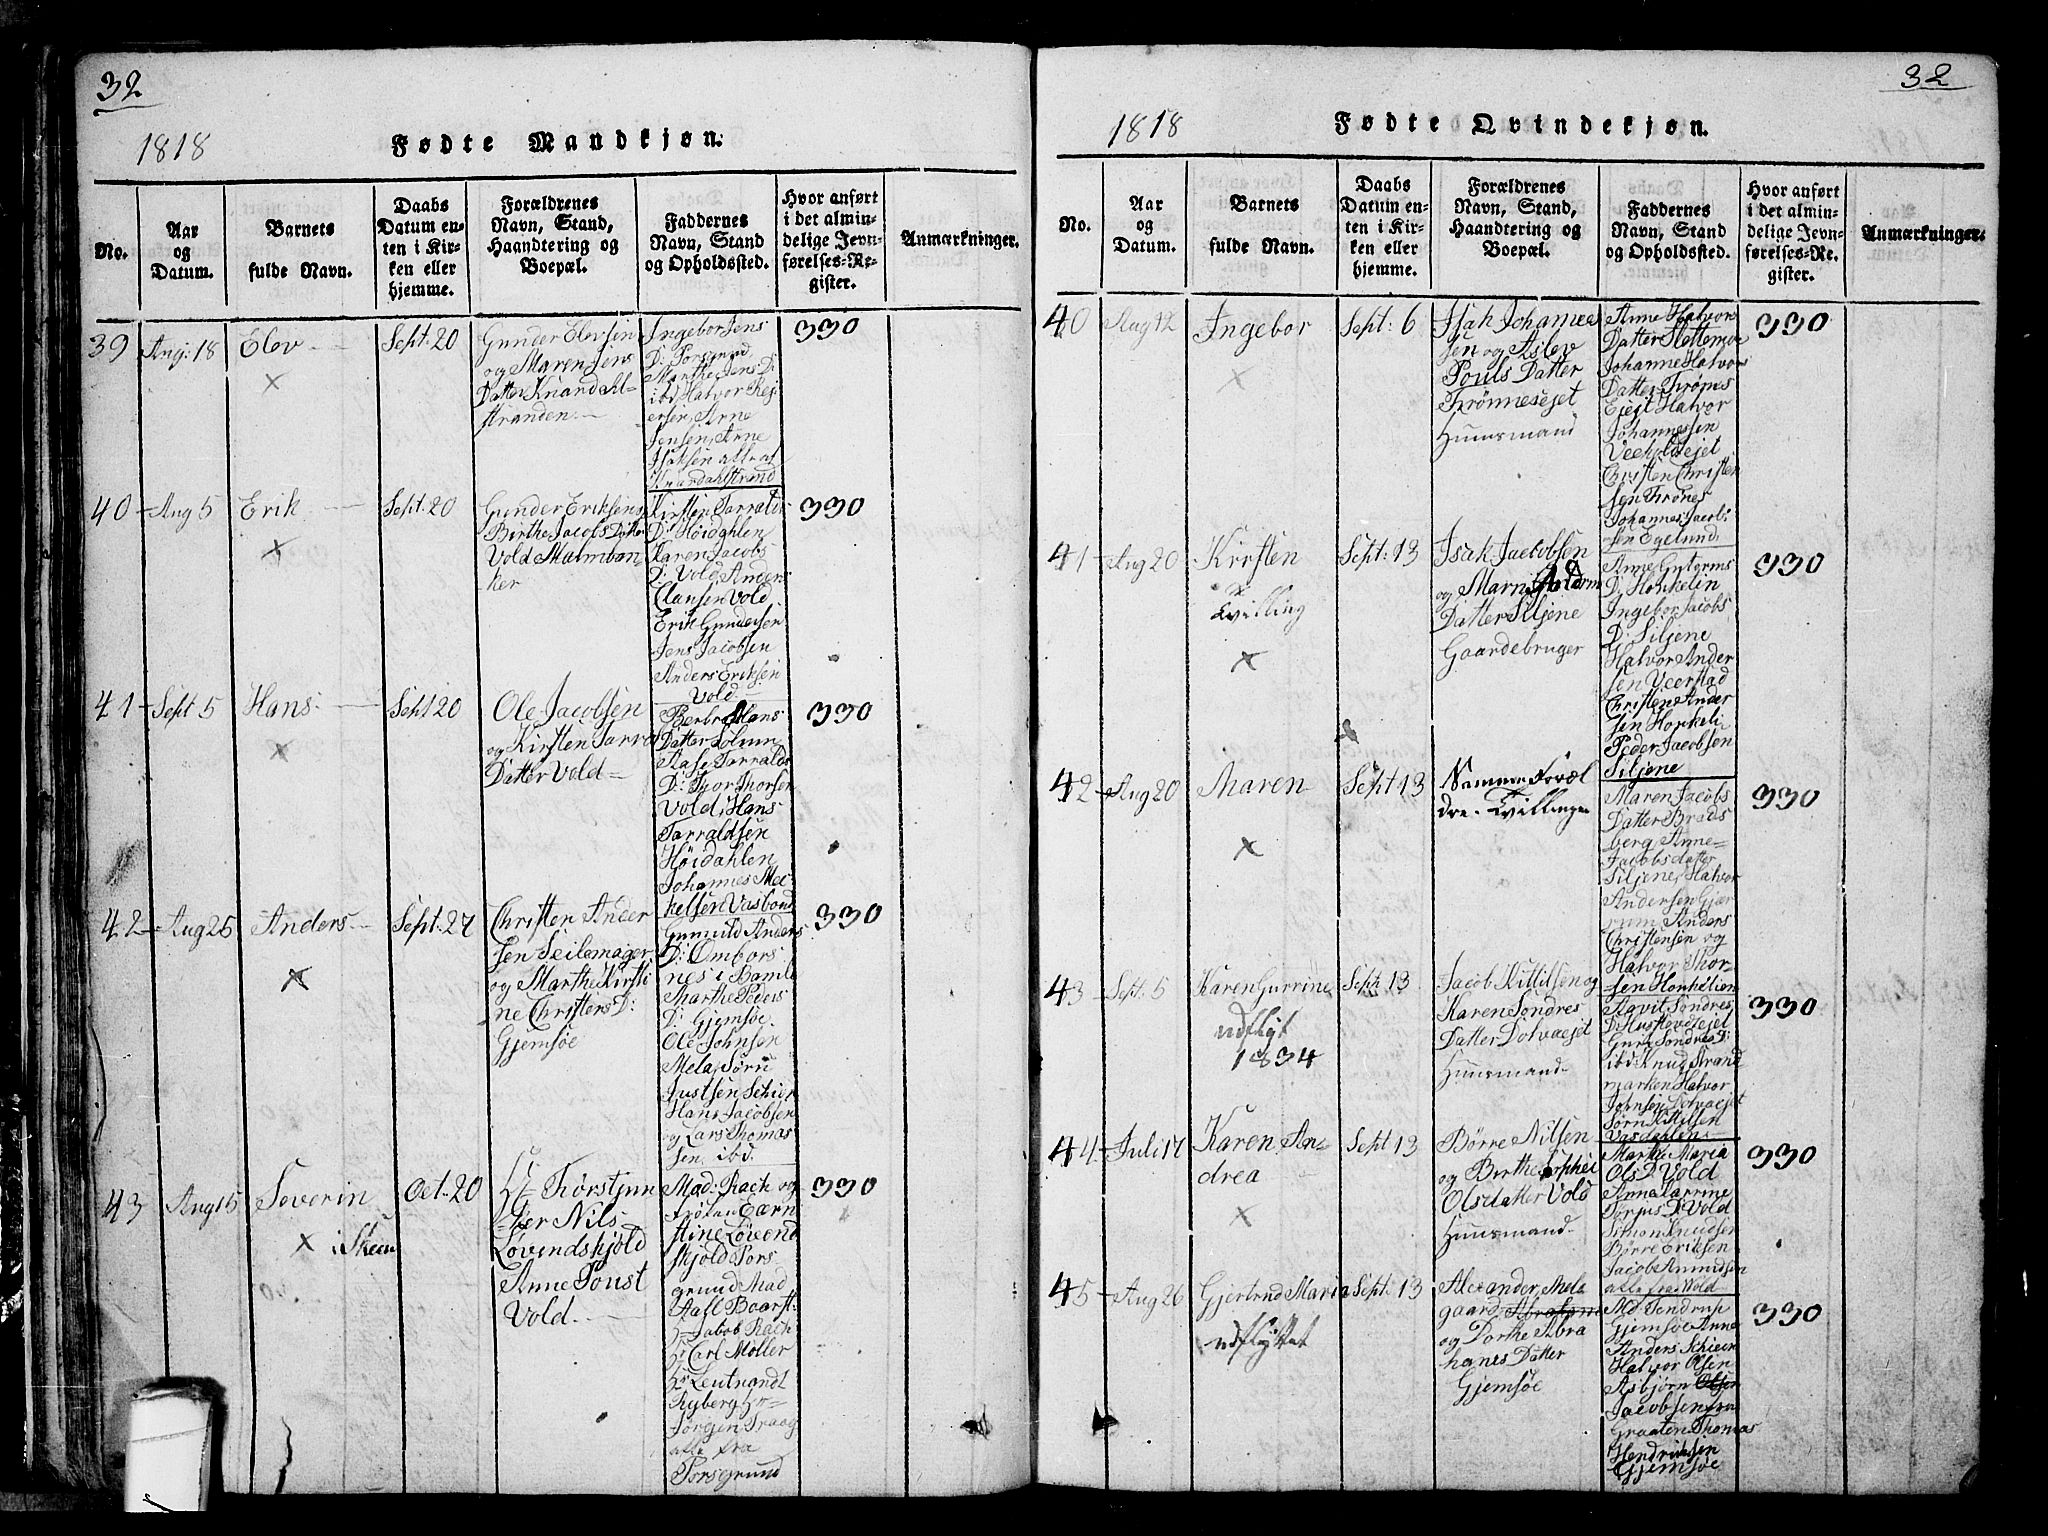 32
1818
Fødte Mandkjøn.
No.
Aar
og
Datum.
Barnets
fulde Navn.
Daabs
Datum en-
ten i Kir-
ken eller
hjemme.
Forældrenes
Navn, Stand,
Haandtering og
Boepæl.
Faddernes
Navn, Stand
og Opholdssted.
Hvor anført
i det almin-
delige Jevn-
førelses-Re-
gister.
Anmærkninger.
39
Aug: 18
Elev
Sept. 20
Gunder Elevsen
og Maren Jens
Datter Knardahl-
stranden.
Ingebor Jens
D: Porsgrund
Marthe Jens D:
ibd Halvor Rej
ersen, Arne
Jensen, Arne
Isaksen alle af
Knardahlstrand
330
40
Aug 5
Erik
Sept. 20
Gunder Eriksens
Birthe Jacobs Datter
Vold Malmban
ker
Kirsten Tarralds
D: Höidahlen
Karen Jacobs
D: Vold Anders
Clausen Vold
Erik Gundersen
Jens Jacobsen
Anders Eriksen
Vold
330
41
Sept 5
Hans
Sept 20
Ole Jacobsen
og Kirsten Tarra
Datter Vold
Berbro Hans
Datter Solum
Aase Tarralds
D: Thorsen
Vold, Hans
Tarraldsen
Höidahlen
Johannes Mec
kelsen Vasbond
330
42
Aug 25
Anders
Sept. 27
Christen Ander
sen Seilemager
og Marthe Kirsti
ne Christens D:
Gjemsøe
Gunnild Anders
D: Ombors
nes i Bamle
Marthe Peders
D: Gjemsøe
Ole Johnsen
Mela, Sørn
Justsen Schier
Hans Jacobsen
og Lars Thomas
sen, ibd.
330
43
Aug 15
Severin
i Skeen
Oct. 20
Hr. Torstjun
ker Nils
Løvendskjold
Anne Poust
Vold.
Mad: Rach og
frøken Eærn
stine Løvend
skjold Pors
grund Mad
Aall Boarst
Hr Jabob Rach
Hr Carl Möller
Hr Leutnandt
Ryberg Hr
Jørgen Traag
alle fra
Porsgrund
330
32
1818
Fødte Qvindekjøn.
No.
Aar
og
Datum.
Barnets
fulde Navn.
Daabs
Datum en-
ten i Kir-
ken eller
hjemme.
Forældrenes
Navn, Stand,
Haandtering og
Boepæl.
Faddernes
Navn, Stand
og Opholdssted.
Hvor anført
i det almin-
delige Jevn-
førelses-Re-
gister.
Anmærkninger.
40
Aug 12
Ingebor
Sept: 6
Isak Johannes
sen og Aslev
Pouls Datter
Trönneseiet
Huusmand
Anne Halvors
Datter Slettemoe
Johanne Halvors
Datter Trönes
Eiejt Halvor
Johannessen
Veeholteiet
Christen Christen
sen Trönes
Johannes Jacob
sen Egelund
330
41
Aug 20
Kirsten
Tvilling
Sept: 13
Isak Jacobsen
og Marni
Datter Siljene
Gaardebruger
Anne Gutorms
D: Honkelin
Ingebor Jacobs
D: Siljene
Halvor Ander
sen Veerstad
Christen Ander
sen Honkeli
Peder Jacobsen
Siljene
330
42
Aug 20
Maren
Sept 13
Samme Foræl
dre. Tvillinger
Maren Jacobs
Datter Brads
berg Anne
Jacobsdatter
Siljene, Halvor
Andersen Gjer
rum Anders
Christensen og
Halvor Thor-
sen Honkelien
330
43
Sept. 5
Karen Gurrine
udflyt
1834
Sept 13
Jacob Kittilsen og
Karen Sondres
Datter Dolvaejet
Huusmand
Aavit Sondres
D:
Guro Sondres D:
ibd: Knud Strand
marken Halvor
Johnsen Dolvaejet
Sørn Kitilsen
Vasdahlen
330
44
Juli 17
Karen An-
drea
Sept 13
Børre Nilsen
og Birthe Sophei
Olsdatter Vold
Huusmand
Marthe Maria
Ols D: Vold
Anna Catrine
Torjus D: Vold
Simon Knudsen
Børre Eriksen
Jacob Amundsen
alle fra Vold
330
45
Aug 26
Gjertrud Maria
udflyttet
Sept. 13
Alexander Mela
gaard Abraham
og Dorthe Abra
hams Datter
Gjemsøe
Md. Tendrup
Gjemsøe Anne
Anders Schieen
Halvor Olsen
Asbjørn Olsen
Jacobsen fra
Graaten Thomas
Hendriksen
Gjemsøe
330